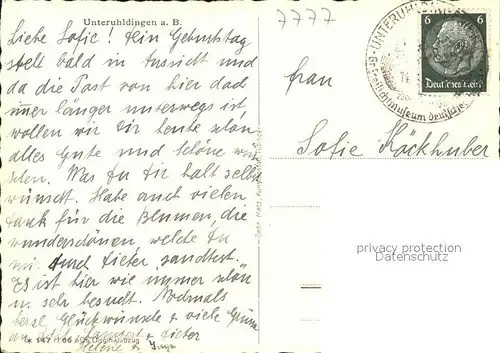 Unteruhldingen a. B.
7777
Liebe Sofie! Dein Geburtstag
steht bald in Aussicht und
da die Post von hier doch
immer länger unterwegs ist,
wollen wir Dir heute schon
alles Gute und schöne wün-
schen. Was Du Dir halt selbst
wünscht. Habe auch vielen
Dank für die Blumen, die
wunderschönen, welche Du
mir durch Dieter "sandtest".
Es ist hier wie immer schön
u. sehr besucht. Nochmals
herzl. Glückwünsche u. viele Grüsse
Dieter
Helene u.
Frau
Sofie Köckhuber
UNTERUHLDINGEN
6 6
Deutsches Reich
privacy protection
Datenschutz